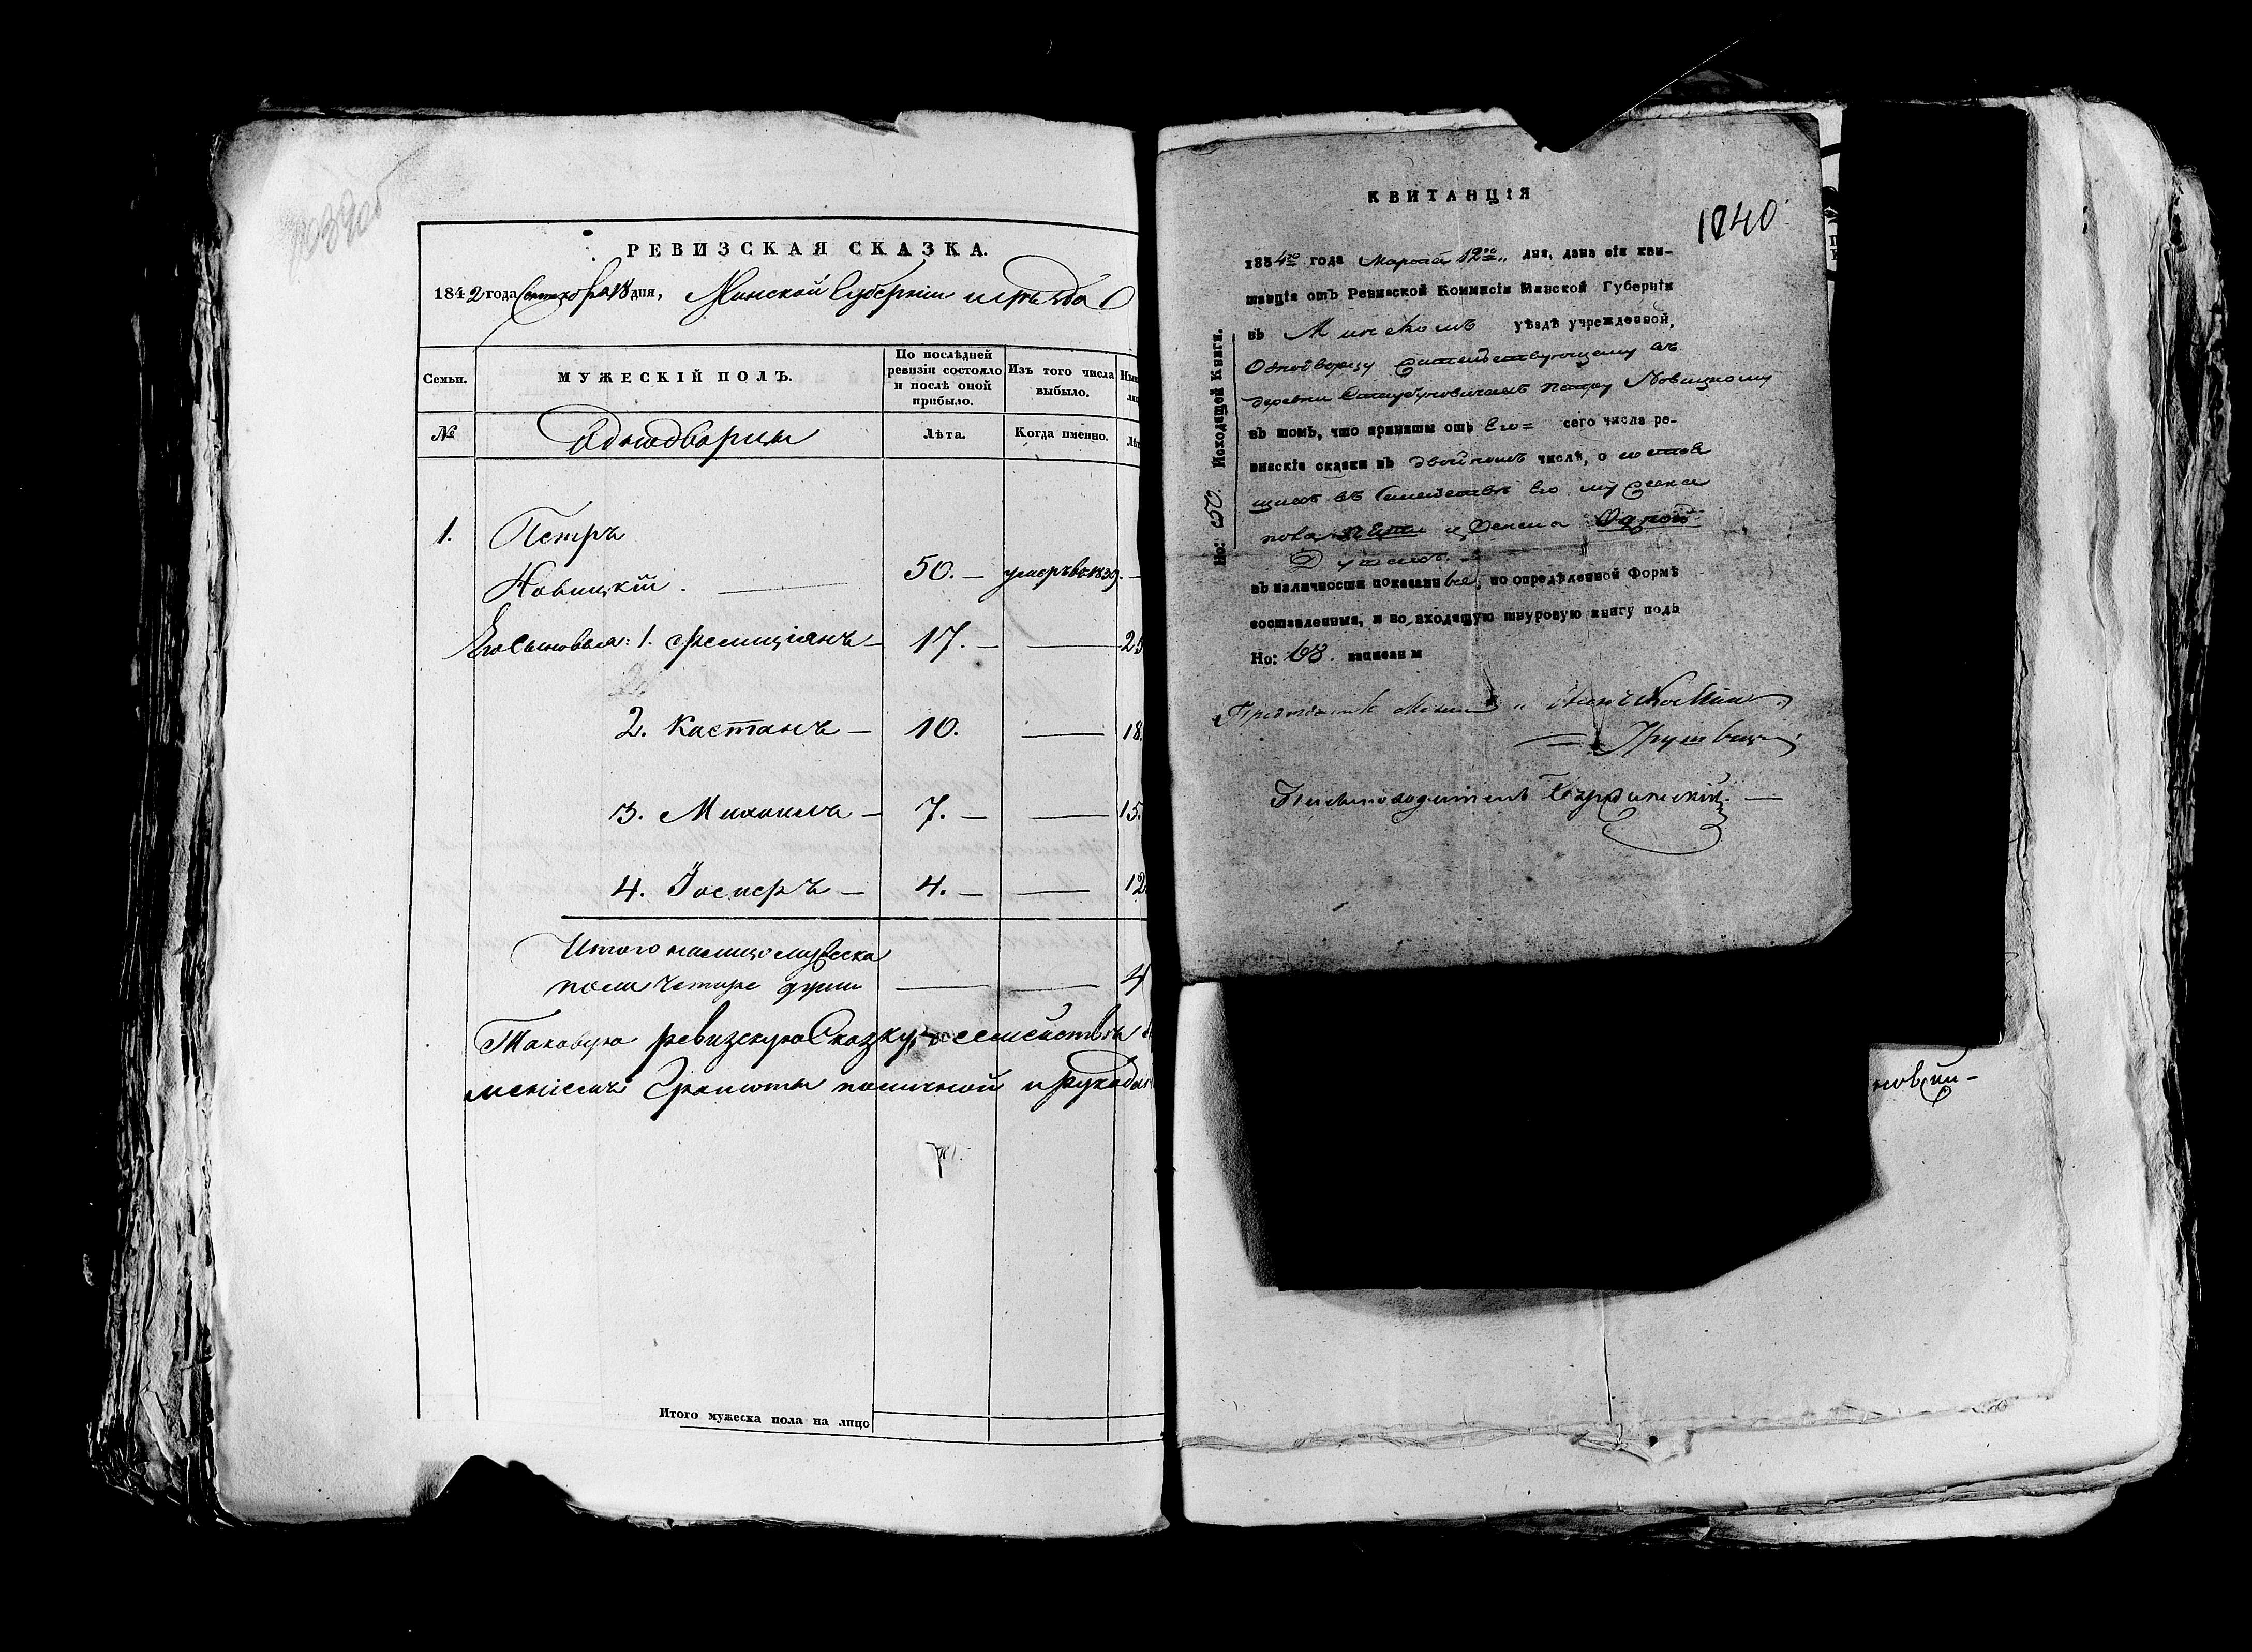 1039об
РЕВИЗСКАЯ СКАЗКА.
1842 года Сентября 18 дня, Минской Губерніи и уѣзда О
Семьи.
МУЖЕСКІЙ ПОЛЪ.
По послѣдней ревизіи состояло и послѣ оной прибыло.
Изъ того числа выбыло.
№
Однодворцы
Лѣта.
Когда именно.
1. Петръ
Новицкій. 50. — умеръ въ 1839. —
Его Сыновья: 1. Фелиціянъ — 17. — — 25
2. Каетанъ — 10. — 18.
3. Михаилъ — 7. — — 15.
4. Іосперъ — 4. — — 12
Итого налицо мужеска
пола Четыре души — — 4
Таковую ревизскую Сказку, о семействѣ
меніемъ Грамоты польичной и рукода
Итого мужеска пола на лицо
КВИТАНЦІЯ
1040
1834го года Марта 12го дня, дана сія кви-
танція отъ Ревизской Коммисіи Минской Губерніи
въ Минскомъ уѣздѣ учрежденной,
Однодворцу въ
деревни Петру Новицкому
въ томъ, что приняты отъ Его сего числа ре-
визскія сказки въ двойномъ числѣ, о состоя
щихъ въ Семействѣ Его мужеска
пола пяти и Женска Одной
Душахъ.
въ наличности показаны все, по опредѣленной Формѣ
составленныя, и во входящую шнуровую книгу подъ
Но: 68. записаны
Но: 50. Исходящей Книги.
Письмоводитель